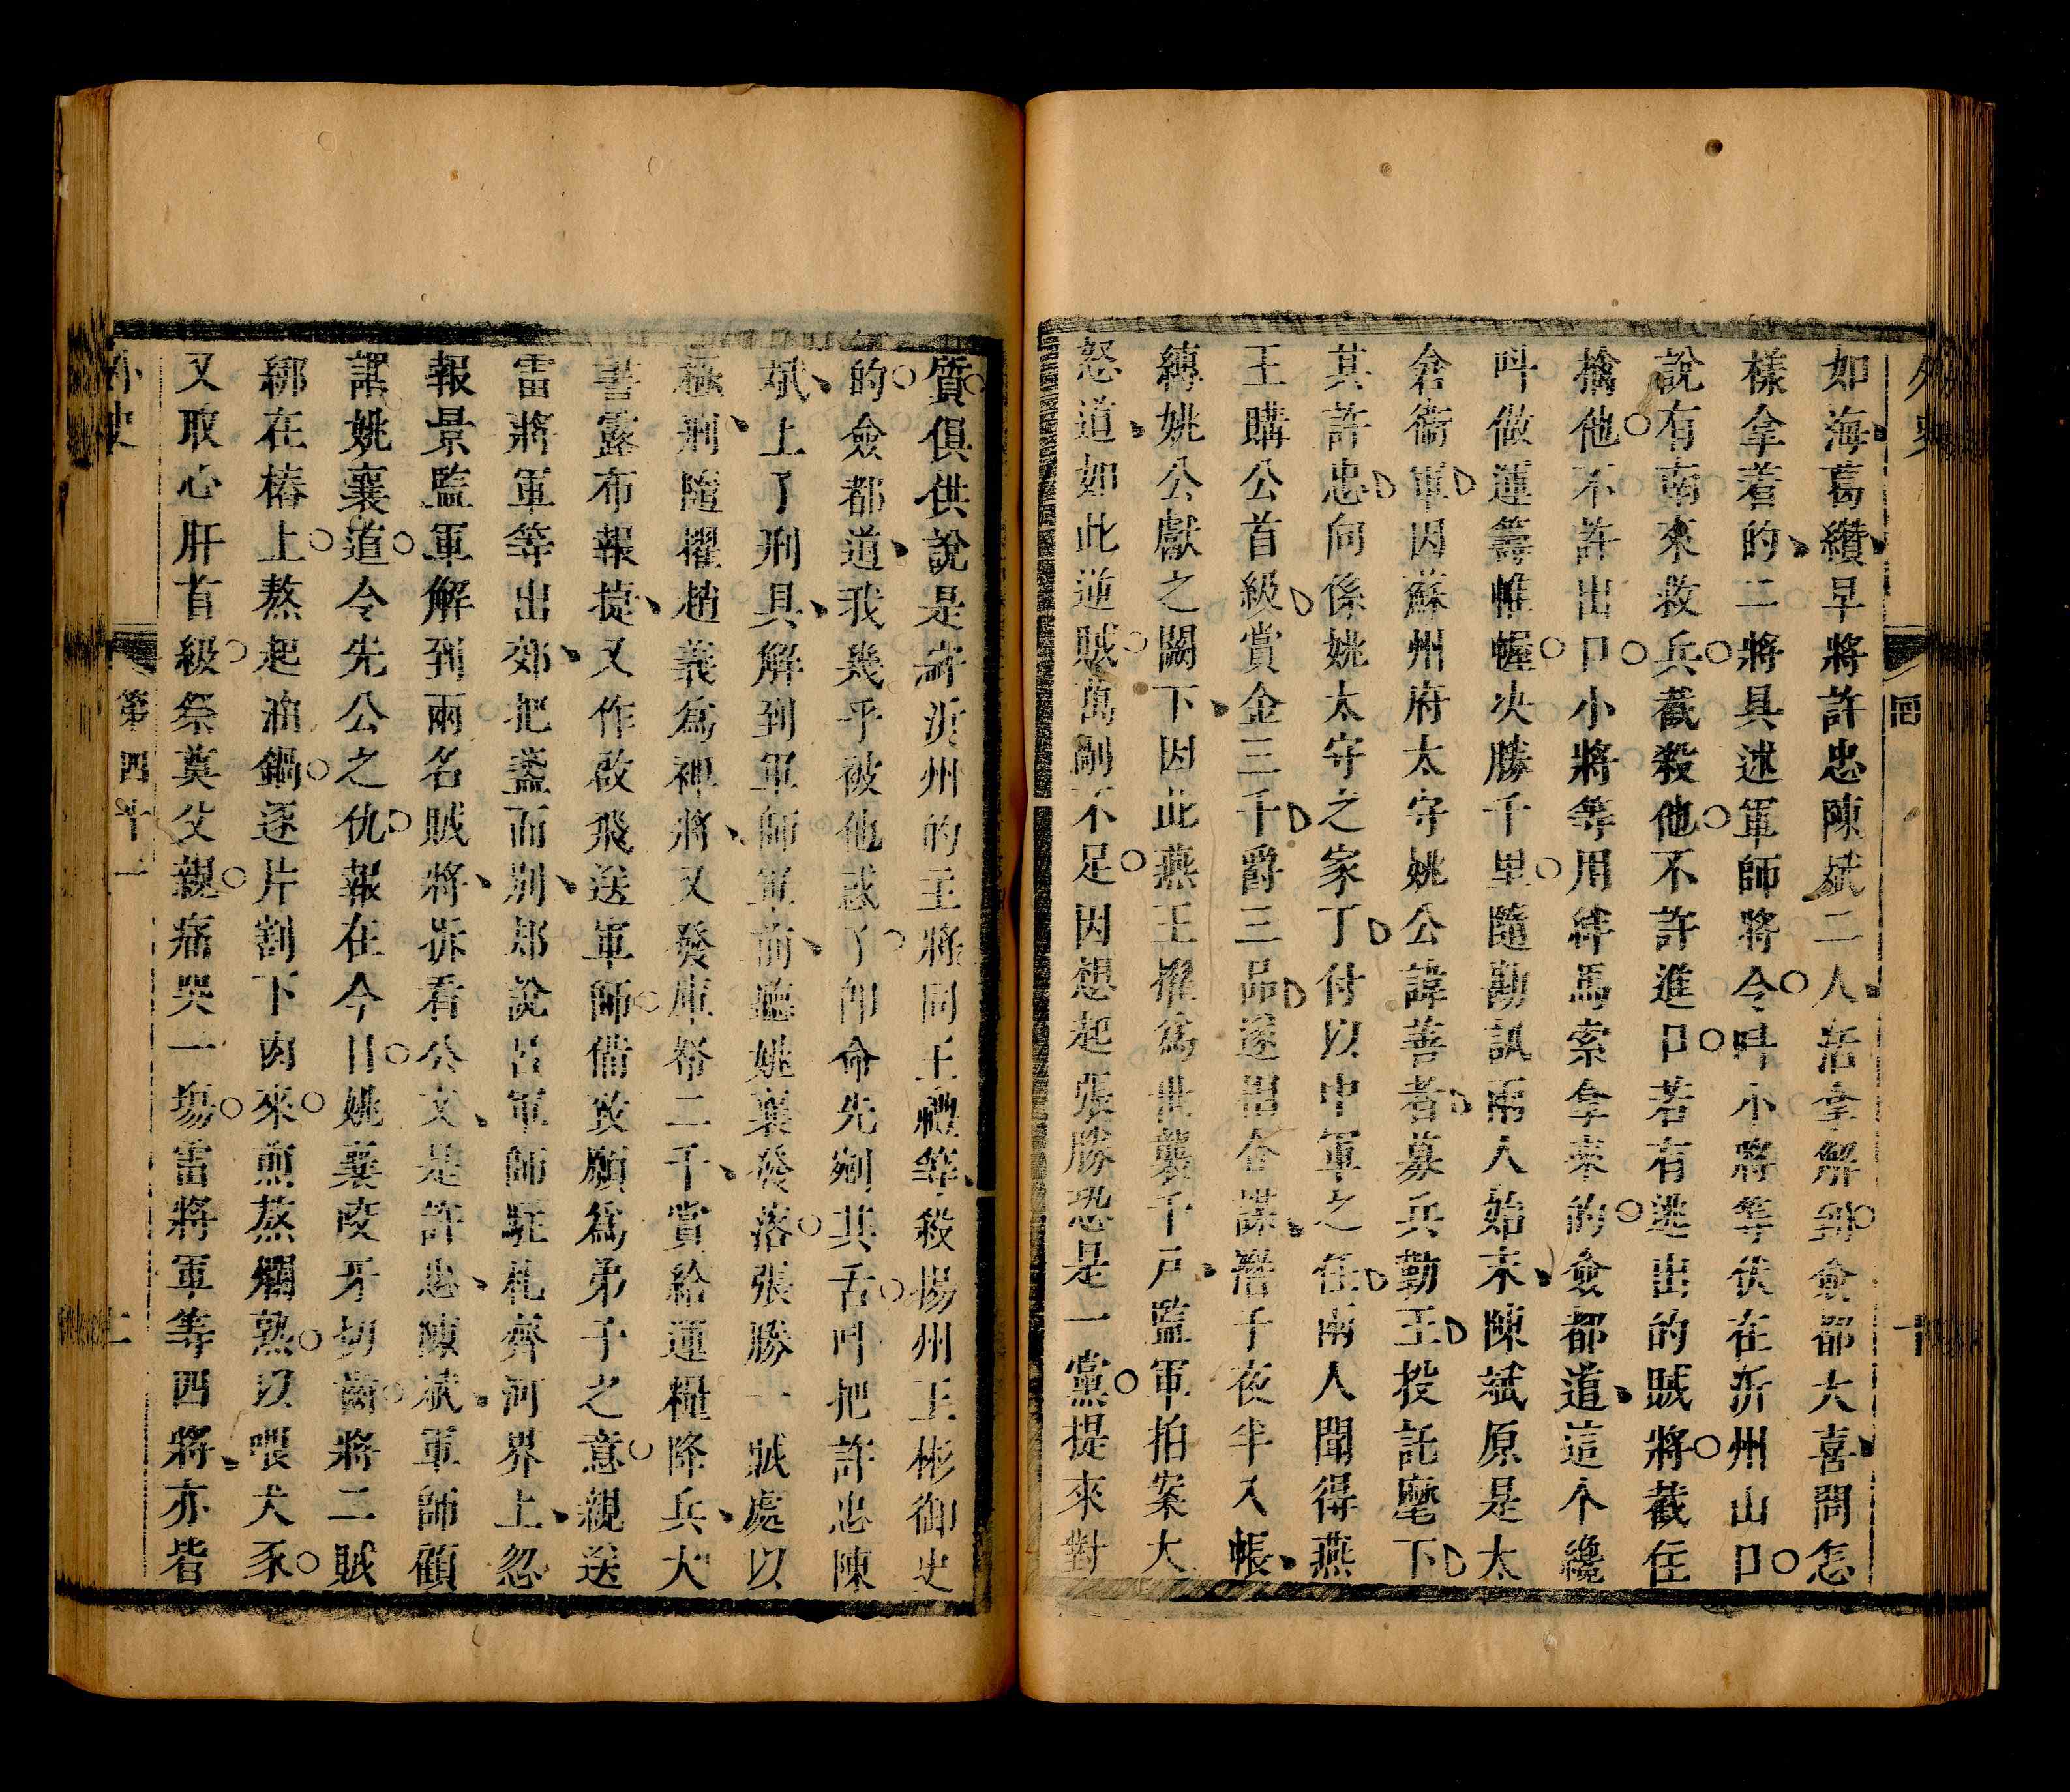 外史
回
如海葛纘早將許忠陳斌二人活拿解到僉都大喜問怎
樣拿着的二將具述軍師將令呌小將等伏在沂州山口
說有南來救兵截殺他不許進口若有逃出的賊將截住
擒他不許出口小將等用絆馬索拿來的僉都道這个纔
呌做運籌帷幄决勝千里隨勘訊兩人始末陳斌原是太
倉衞軍因蘇州府太守姚公諱善者募兵勤王投託麾下
其許忠向係姚太守之家丁付以中軍之任兩人聞得燕
王購公首級賞金三千爵三品遂相合謀潛于夜半入帳
縛姚公獻之闕下因此燕王擢爲世襲千戸監軍拍案大
怒道如此逆賊萬剮不足因想起張勝恐是一黨提來對
質俱供說是許沂州的主將同王禮等殺揚州王彬御史
的僉都道我幾乎被他惑了卽命先剜其舌呌把許忠陳
斌上了刑具解到軍師軍前聽姚襄發落張勝一賊處以
極刑隨擢趙義爲裨將又發庫帑二千賞給運糧降兵大
書露布報捷又作啟飛送軍師備致願爲弟子之意親送
雷將軍等出郊把盞而别却說呂軍師駐札齊河界上忽
報景監軍解到兩名賊將拆看公文是許忠陳斌軍師顧
謂姚襄道令先公之仇報在今日姚襄咬牙切齒將二賊
綁在樁上熬起油鍋逐片割下肉來煎熬爛熟以喂犬豕
又取心肝首級祭奠父親痛哭一塲雷將軍等四將亦皆
外史
第四十一